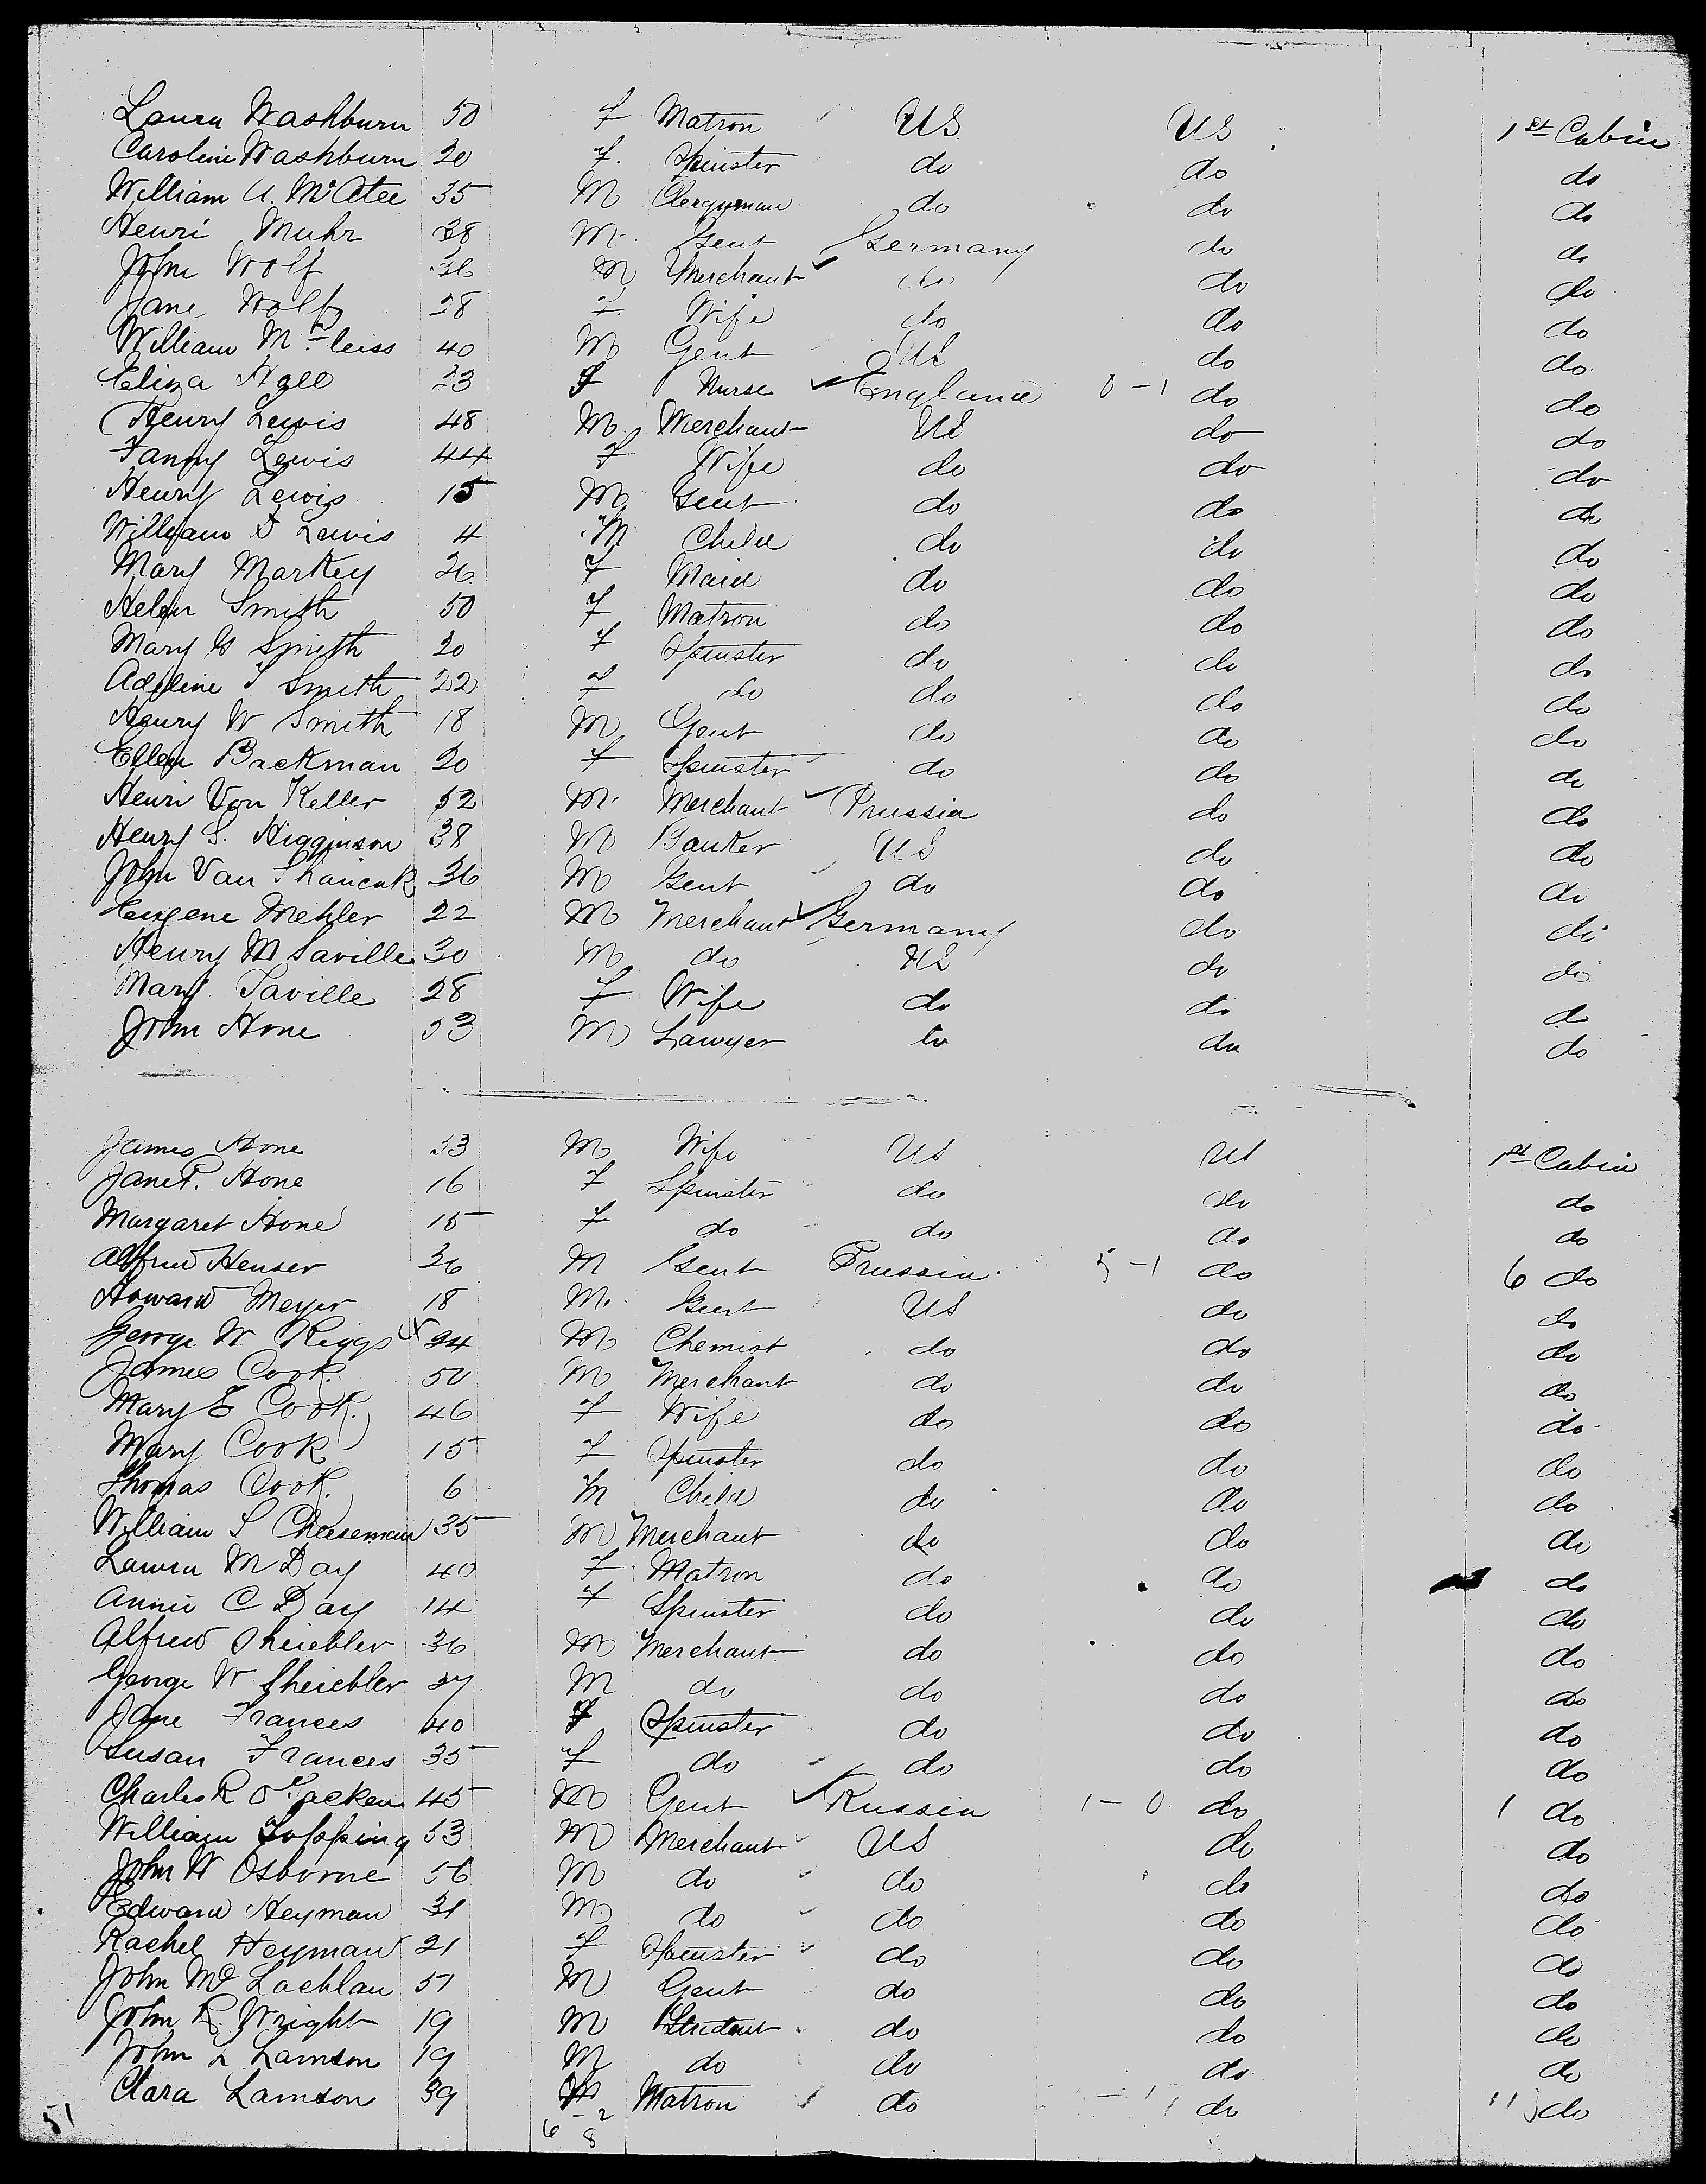 Laura Washburn 50 F Matron US US 1st Cabin
Caroline Washburn 20 F. Spinster do do do
William A. McAtee 35 M Clergyman do do do
Henri Muhr 38 M. Gent Germany do do
John Wolf 36 M Merchant do do do
Jane Wolf 28 F Wife do do do
William 40 M Gent US do do
Eliza 23 F Nurse England 0-1 do do
Henry Lewis 48 M Merchant US do do
Fanny Lewis 44 F Wife do do do
Henry Lewis 15 M Gent do do do
William D Lewis 4 M Child do do do
Mary Markey 26 F Maid do do do
Helen Smith 50 F Matron do do do
Mary G Smith 20 F Spinster do do do
Adeline T Smith 22 F do do do do
Henry W Smith 18 M Gent do do do
Ellen Backman 20 F Spinster do do do
Henri Von Keller 52 M. Merchant Prussia do do
Henry S. Higginson 38 M Banker US do do
John Van 36 M Gent do do do
Eugene Mehler 22 M Merchant Germany do do
Henry M Saville 30 M do US do do
Mary Saville 28 F Wife do do do
John Hone 53 M Lawyer do do do
James Hone 53 M Wife US US 1st Cabin
Jane P. Hone 16 F Spinster do do do
Margaret Hone 15 F do do do do
Alfred Heuser 26 M Gent Prussia 5-1 do 6 do
Howard Meyer 18 M. Gent US do do
George W Riggs 24 M Chemist do do do
James Cook 50 M Merchant do do do
Mary E Cook 46 F Wife do do do
Mary Cook 15 F Spinster do do do
Thomas Cook. 6 M Child do do do
William S Cheeseman 35 M Merchant do do do
Laura M Day 40 F Matron do do do
Annie C Day 14 F Spinster do do do
Alfred Sheiebler 36 M Merchant do do do
George W Sheiebler 37 M do do do do
Jane Frances 40 F Spinster do do do
Susan Frances 35 F do do do do
Charles R 45 M Gent Russia 1-0 do 1 do
William Topping 53 M Merchant US do do
John W Osborne 56 M do do do do
Edward Heyman 31 M do do do do
Rachel Heyman 21 F Spinster do do do
John Mc Lachlan 51 M Gent do do do
John R. Wright 19 M Student do do do
John L Lamson 19 M do do do do
Clara Lamson 39 Matron do do do
51 6-2
8